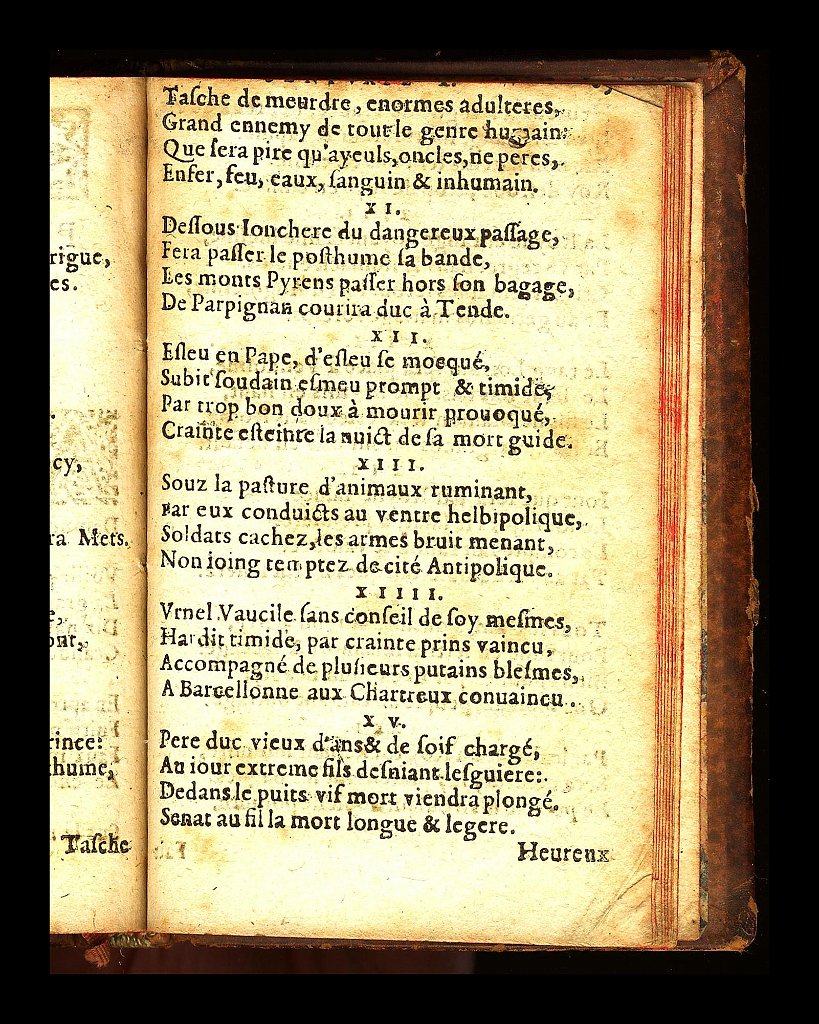 rigue,
es.
cy,
ra Mets.
e,
ont,
rince:
thume,
Taſche
Taſche de meurdre, enormes adulteres,
Grand ennemy de tout le genre humain:
Que ſera pire qu'ayeuls, oncles, ne peres,
Enfer, feu, eaux, ſanguin & inhumain.
XI.
Deſſous Ionchere du dangereux paſſage,
Fera paſſer le poſthume ſa bande,
Les monts Pyrens paſſer hors ſon bagage,
De Parpignan courira duc à Tende.
XII.
Eſleu en Pape, d'eſleu ſe mocqué,
Subit ſoudain eſmeu prompt & timide,
Par trop bon doux à mourir prouoqué,
Crainte eſteinte la nuict de ſa mort guide.
XIII.
Souz la paſture d'animaux ruminant,
Par eux conduicts au ventre helbipolique,
Soldats cachez, les armes bruit menant,
Non ioing temptez de cité Antipolique.
XIIII.
Vrnel Vaucile ſans conſeil de ſoy meſmes,
Hardit timide, par crainte prins vaincu,
Accompagné de pluſieurs putains bleſmes,
A Barcellonne aux Chartreux conuaincu.
XV.
Pere duc vieux d'ans & de ſoif chargé,
Au iour extreme fils deſniant leſguiere:
Dedans le puits vif mort viendra plongé.
Senat au fil la mort longue & legere.
Heureux